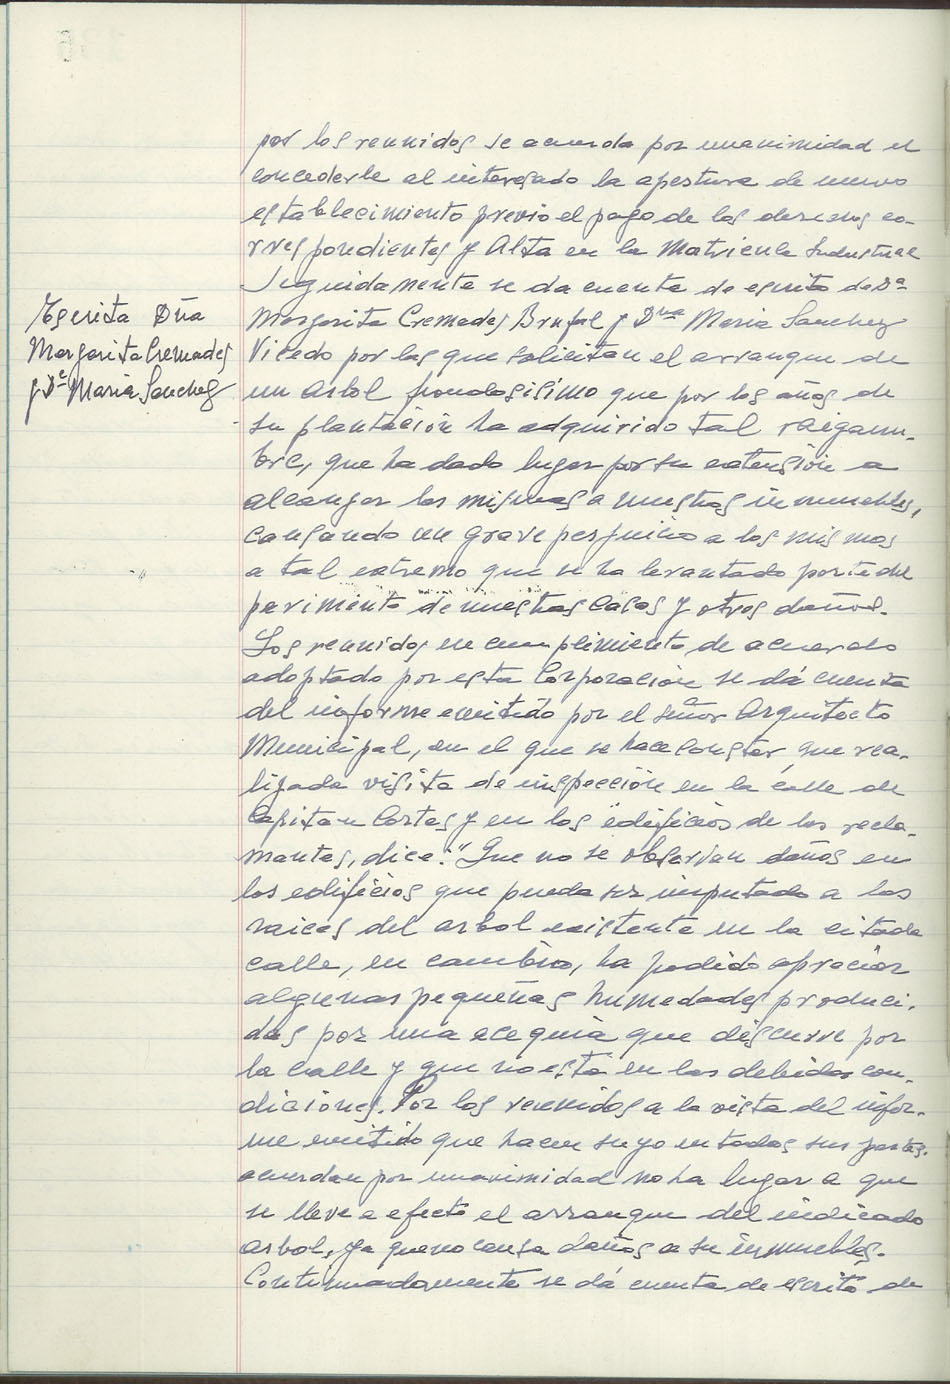 por los reunidos se acuerda por unanimidad el
concederle al interesado la apertura de nuevo
establecimiento previo el pago de los derechos co-
rrespondientes y Alta en la Matricula Industrial
Seguidamente se da cuenta de escrito de Dª
Escrita Dña
Margarita Cremades
y Dª Maria Sanchez
Margarita Cremades Brufal y Dña Maria Sanchez
Vicedo por las que solicitan el arranque de
un arbol frondosisimo que por los años de
su plantación ha adquirido tal raigam-
bre, que ha dado lugar por su extensión a
alcanzar las mismas a nuestros inmuebles,
causando un grave perjuicio a los mismos
a tal extremo que se ha levantado parte del
pavimento de nuestras casas y otros daños.
Los reunidos en cumplimiento de acuerdo
adoptado por esta Corporación se dá cuenta
del informe emitido por el señor Arquitecto
Municipal, en el que se hace constar, que rea-
lizada visita de inspección en la calle de
Capitan Cortes y en los edificios de los recla-
mantes, dice: "Que no se observan daños en
los edificios que pueda ser imputado a las
raices del arbol existente en la citada
calle, en cambio, ha podido apreciar
algunas pequeñas humedades produci-
das por una acequia que discurre por
la calle y que no está en las debidas con-
diciones. Por los reunidos a la vista del infor-
me emitido que hacen suyo en todas sus partes.
acuerdan por unanimidad no ha lugar a que
se lleve a efecto el arranque del indicado
arbol, ya que no causa daños a su inmuebles.
Continuadamente se dá cuenta de escrito de